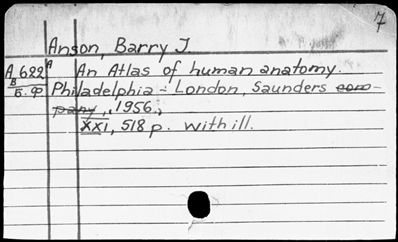 7
Anson, Barry J.
A 622 A An Atlas of human anatomy.
B Б. ф Philadelphia - London, Saunders com-
pany, 1956.,
XXI, 518 p. with ill.